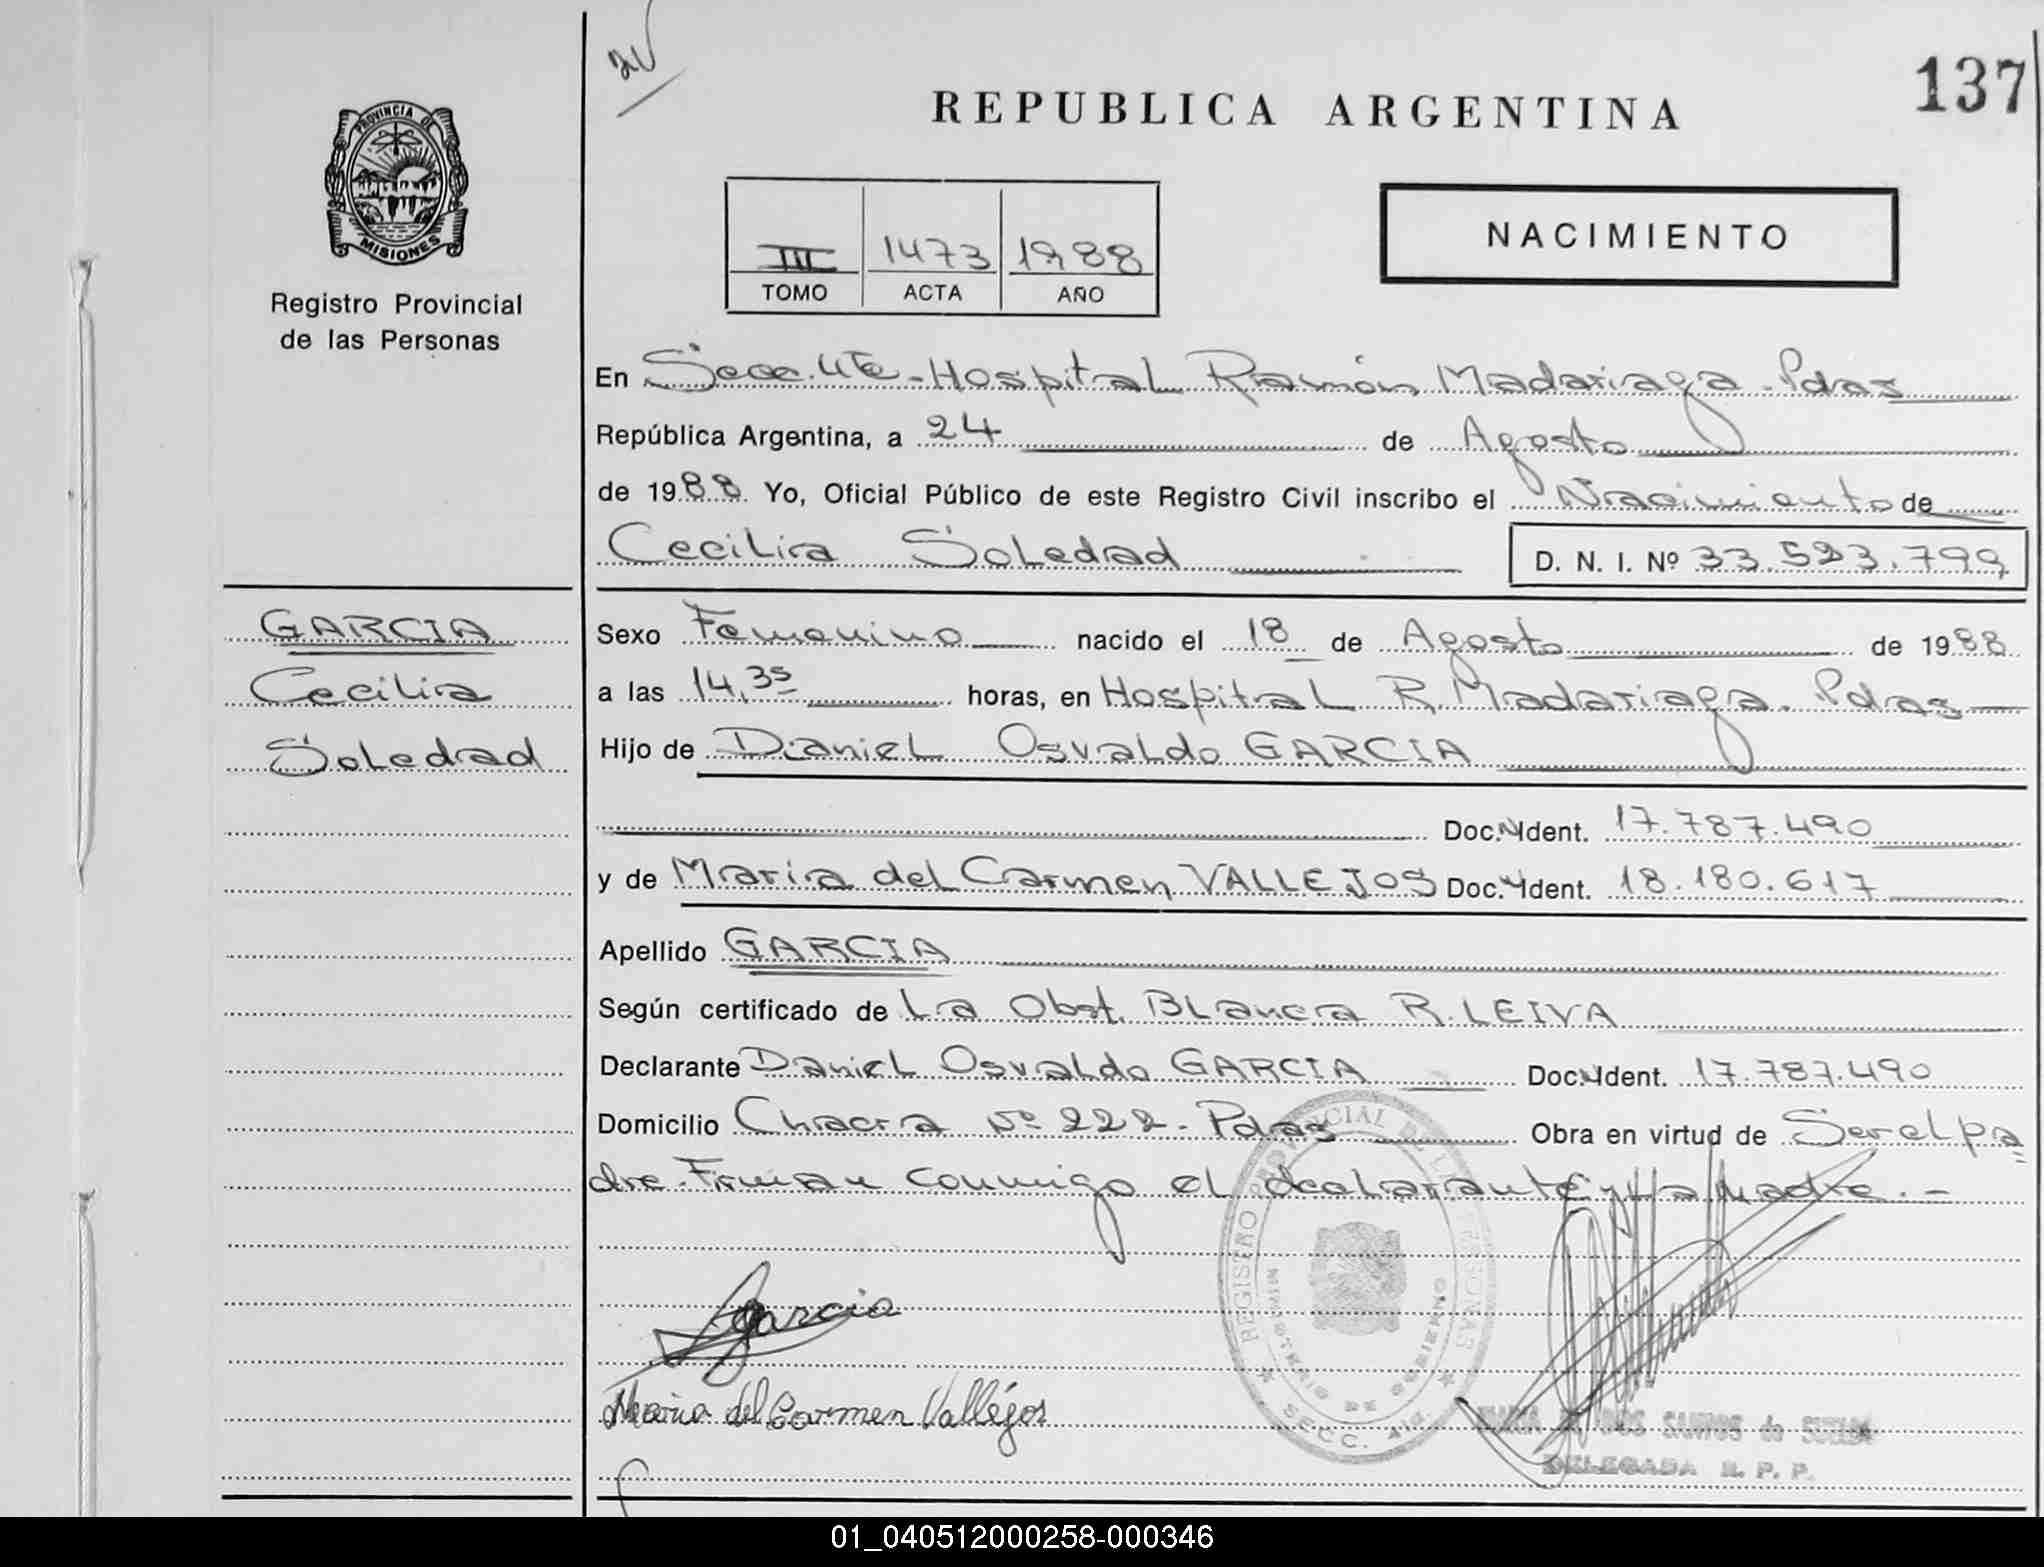 137
REPUBLICA ARGENTINA
PROVINCIA DE
MISIONES
Registro Provincial
de las Personas
III 1473 1988
TOMO ACTA AÑO
NACIMIENTO
En Secc. 4ta - Hospital Ramón Madariaga - Pdas
República Argentina, a 24 de Agosto
de 1988 Yo, Oficial Público de este Registro Civil inscribo el Nacimiento de
Cecilia Soledad D. N. I. Nº 33.523.799
GARCIA
Cecilia
Soledad
Sexo Femenino nacido el 18 de Agosto de 1988
a las 14,35 horas, en Hospital R. Madariaga. Pdas
Hijo de Daniel Osvaldo GARCIA
Doc. Ident. 17.787.490
y de Maria del Carmen VALLEJOS Doc. Ident. 18.180.617
Apellido GARCIA
Según certificado de La Obst. Blanca R. LEIVA
Declarante Daniel Osvaldo GARCIA Doc. Ident. 17.787.490
Domicilio Chacra Nº 222 - Pdas Obra en virtud de Ser el pa
dre. Firman conmigo el declarante y la madre. -
REGISTRO PROVINCIAL DE LAS PERSONAS
SECC.
Garcia
Maria del Carmen Vallejos
DELEGADA R. P. P.
01_040512000258-000346